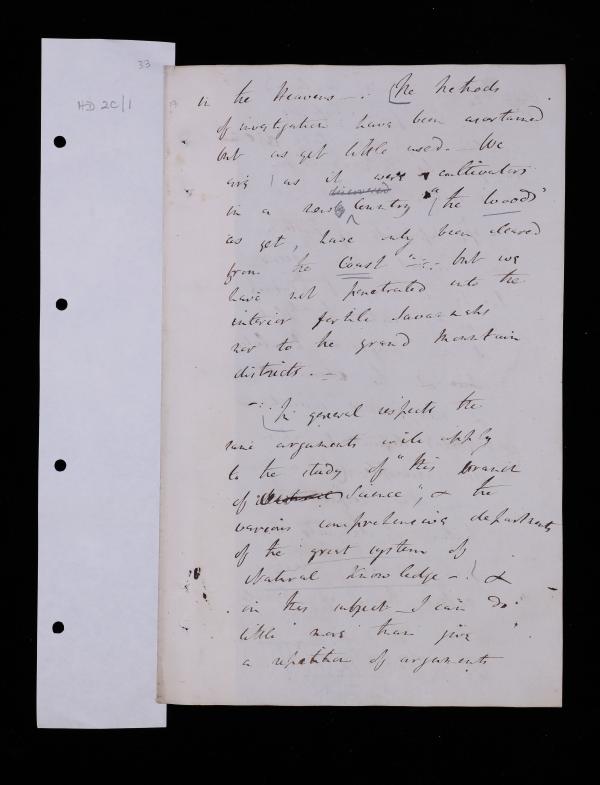 33
HD 2C/1
in the Heavens —. The methods
of investigation have been ascertained
but as yet little used. — We
are as it were cultivators
discovered
in a new Country "the Woods"
as yet, have only been cleared
from the Coast "— but we
have not penetrated into the
interior fertile Savannahs
nor to the grand Mountain
districts. —
— In general respects the
same arguments will apply
to the study of "this branch
of Science", & the
various comprehensive departments
of the great system of
Natural Knowledge — &
in this subject — I can do
little more than give
a repetition of arguments